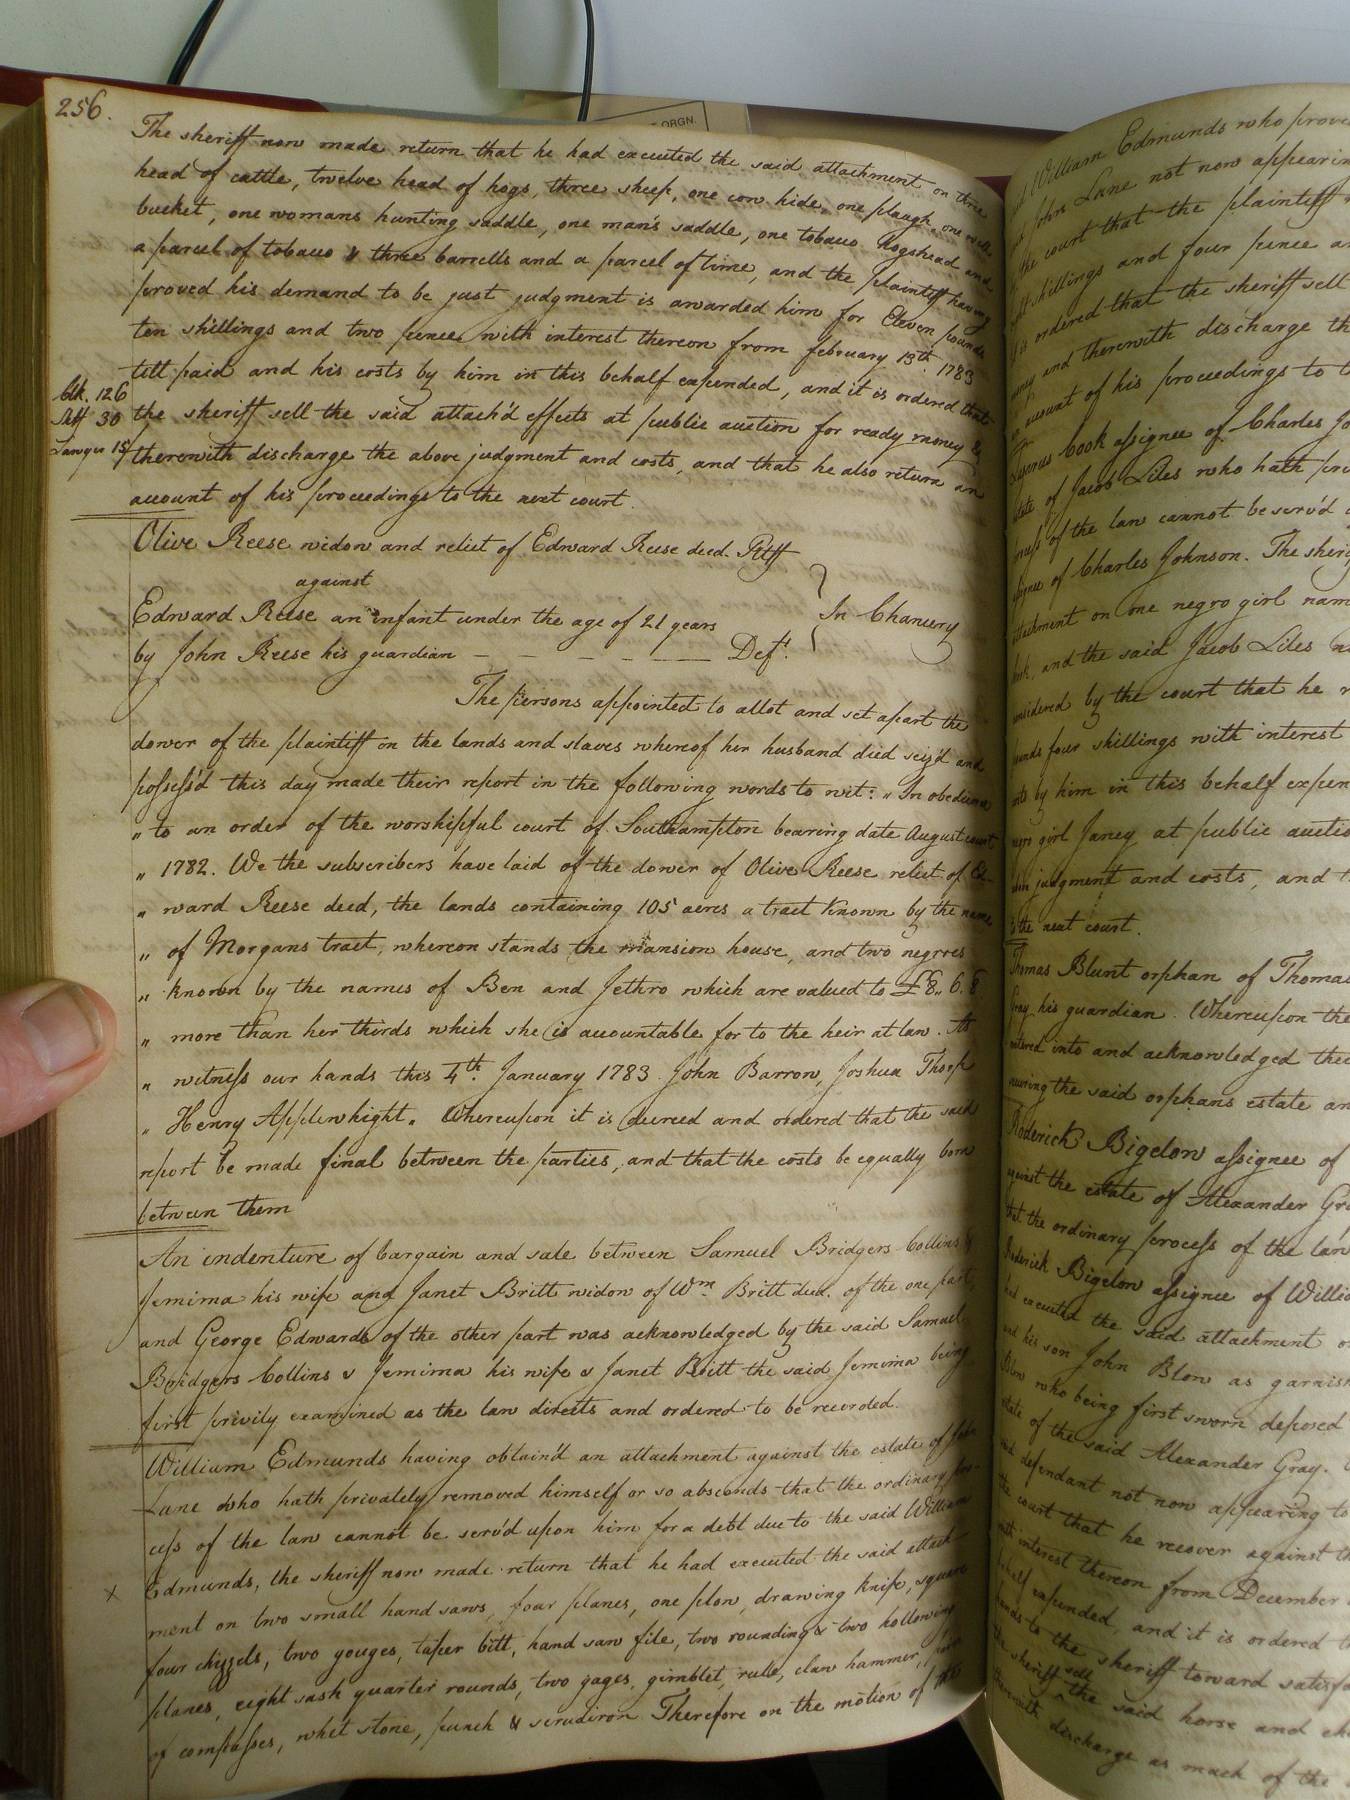 256.
The sheriff now made return that he had executed the said attachment on three
head of cattle, twelve head of hogs, three sheep, one cow hide, one plough, one well
bucket, one womans hunting saddle, one man's saddle, one tobacco hogshead and
a parcel of tobacco & three barrells and a parcel of lime, and the plaintiff having
proved his demand to be just judgment is awarded him for Eleven pounds
ten shillings and two pence with interest thereon from february 13th. 1783
till paid and his costs by him in this behalf expended, and it is ordered that
Clk. 126
Shff 30
Lawyer 15/
the sheriff sell the said attach'd effects at public auction for ready money &
therewith discharge the above judgment and costs, and that he also return an
account of his proceedings to the next court.
Olive Reese widow and relict of Edward Reese decd. Pltff
against
Edward Reese an infant under the age of 21 years
In Chancery
by John Reese his guardian - - - - - Deft.
The persons appointed to allot and set apart the
dower of the plaintiff on the lands and slaves whereof her husband died seiz'd and
possess'd this day made their report in the following words to wit: "In obedience
" to an order of the worshipful court of Southampton bearing date August court
" 1782. We the subscribers have laid of the dower of Olive Reese relict of Ed-
" ward Reese decd, the lands containing 105 acres a tract known by the name
" of Morgans tract, whereon stands the mansion house, and two negroes
" known by the names of Ben and Jethro which are valued to £8.. 6. 8
" more than her thirds which she is accountable for to the heir at law. As
" witness our hands this 4th. January 1783. John Barrow, Joshua Thorp
" Henry Applewhight. Whereupon it is decreed and ordered that the said
report be made final between the parties, and that the costs be equally born
between them
An indenture of bargain and sale between Samuel Bridgers Collins &
Jemima his wife and Janet Britt widow of Wm Britt decd. of the one part,
and George Edwards of the other part was acknowledged by the said Samuel
Bridgers Collins & Jemima his wife & Janet Britt the said Jemima being
first privily examined as the law directs and ordered to be recorded.
William Edmunds having obtain'd an attachment against the estate of John
Lane who hath privately removed himself or so absconds that the ordinary pro-
cess of the law cannot be serv'd upon him for a debt due to the said William
x Edmunds, the sheriff now made return that he had executed the said attach-
ment on two small hand saws, four planes, one plow, drawing knife, square
four chizzels, two gouges, taper bitt, hand saw file, two rounding & two hollowing
planes, eight sash quarter rounds, two gages, gimblet, rule, claw hammer, pair
of compasses, whet stone, punch & scrudiron Therefore on the motion of the
T ORGN.
William Edmunds who prove
John Lane not now appearing
the court that the plaintiff
shillings and four pence
is ordered that the sheriff sell
money and therewith discharge th
account of his proceedings to t
Cook assignee of Charles Jo
estate of Jacob Liles who hath
of the law cannot be serv'd
of Charles Johnson. The sheri
attachment on one negro girl nam
and the said Jacob Liles
considered by the court that he
pounds four shillings with interest
costs by him in this behalf expen
negro girl Janey at public auctio
judgment and costs, and
to the next court.
Thomas Blunt orphan of Thomas
Gray his guardian. Whereupon the
entered into and acknowledged thei
securing the said orphans estate an
Roderick Bigelow assignee of
against the estate of Alexander Gr
that the ordinary process of the law
Roderick Bigelow assignee of Willia
had executed the said attachment
and his son John Blow as garnish
Blow who being first sworn deposed
estate of the said Alexander Gray.
said defendant not now appearing to
the court that he recover against th
with interest thereon from December
behalf expended, and it is ordered
hands to the sheriff toward satisfa
the sheriff sell the said horse and
therewith discharge as much of the